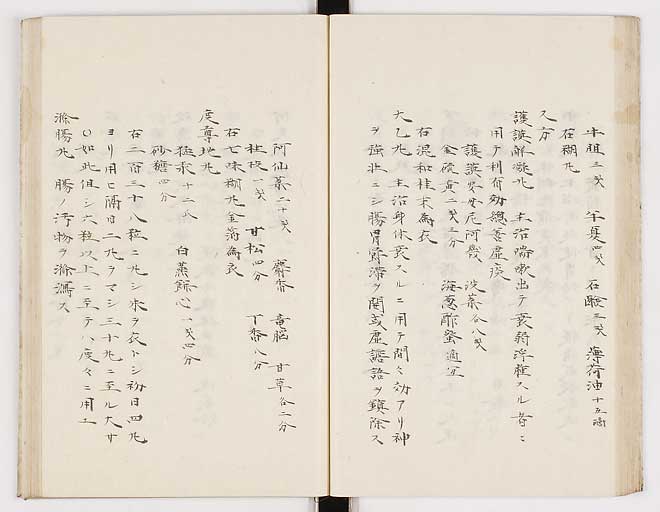 牛胆二戋 牛真四戋 石鹸三戋 薄荷油十五滴
右糊丸
又方
護謨解凝丸 主治喘嗽出テ衰弱浮腫スル者ニ
用テ利有効総善虚痰
護謨安没尼阿幾 没薬各八戋
金硫黄二戋二分 海葱酢蜜適宜
右混和桂末為衣
大乙丸 主治身体衰スルニ用テ間々効アリ神
ヲ強壮ニシ腸胃欝滞ヲ開或虚譫語ヲ鎮除ス
阿仙薬二十戋 麝香 竜脳 甘草各二分
桂枝一戋 甘松四分 丁香八分
右七味糊丸金箔為衣
度尊地丸
猛汞十二分 白蒸餅心一戋四分
砂糖四分
右二百三十八粒ニ丸シ朱ヲ衣トシ初日四丸
ヨリ用ヒ隔日二丸ヲマシ三十丸ニ至ル大サ
〇如此但シ六粒以上ニ至テハ度々ニ用エ
滌腸丸 腸ノ汚物ヲ滌瀉ス